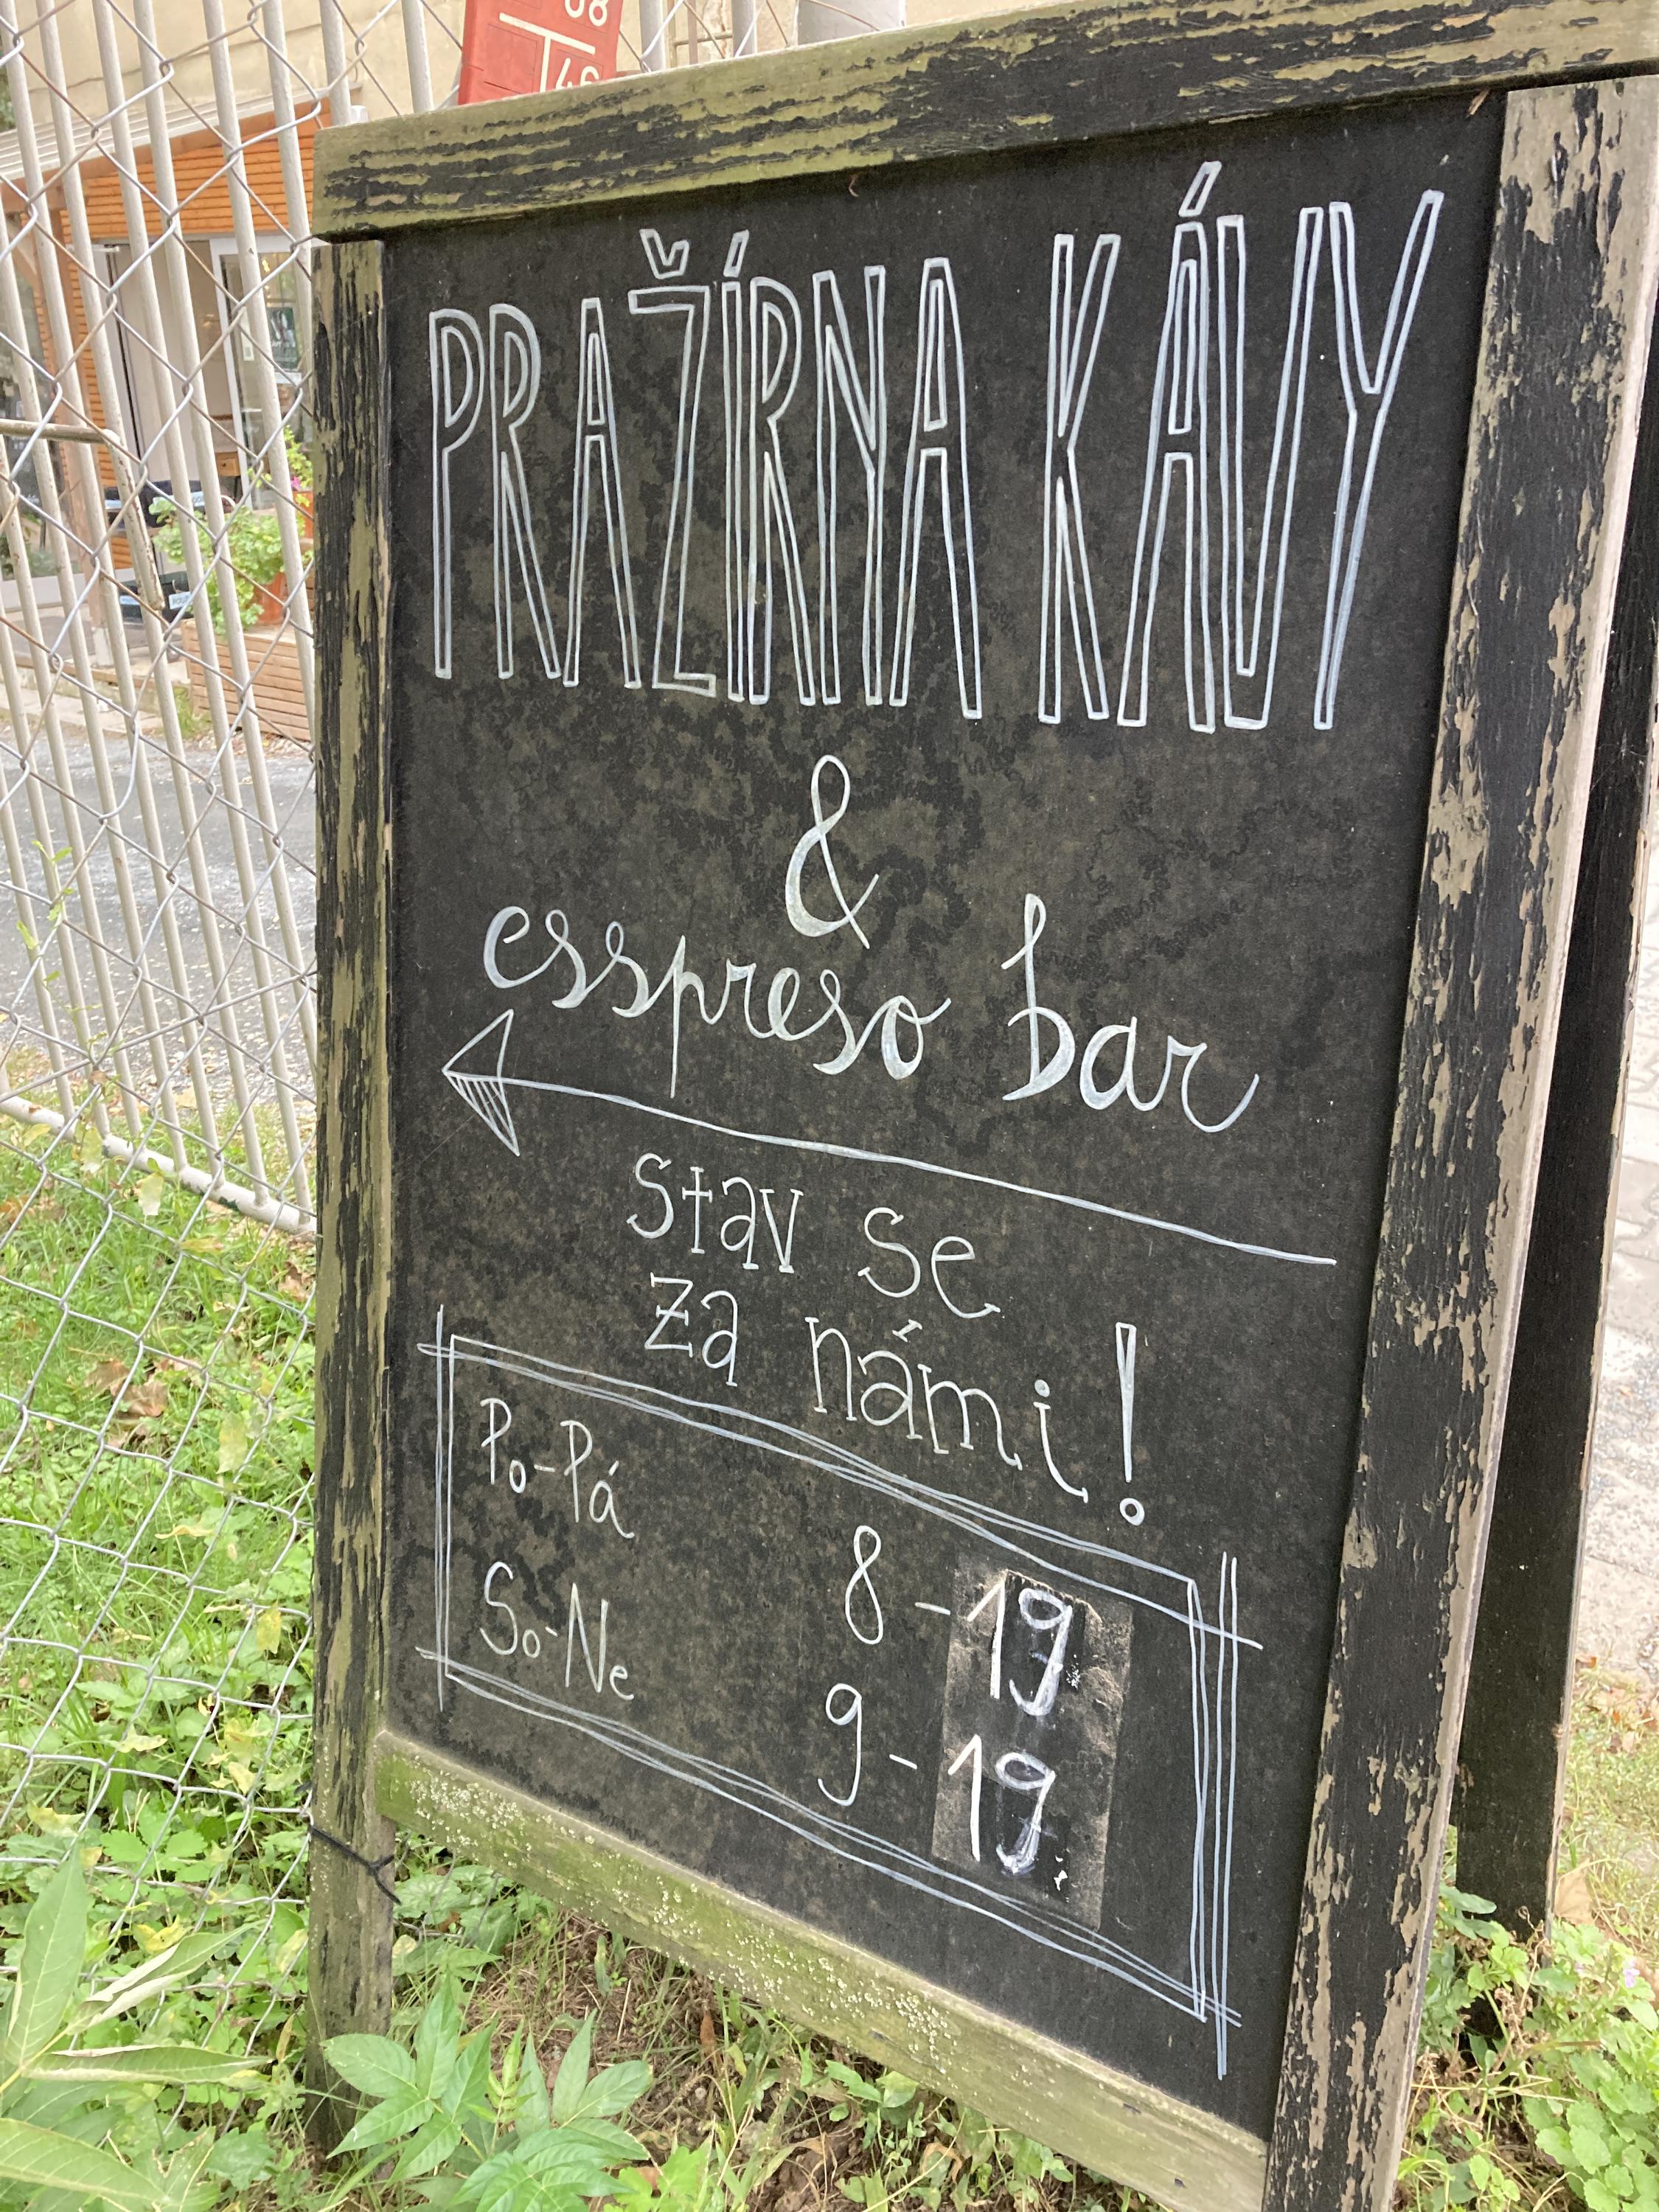 PRAŽÍRNA KÁVY
&
esspreso bar
Stav se
za námi!
Po-Pá 8-19
So-Ne 9-19